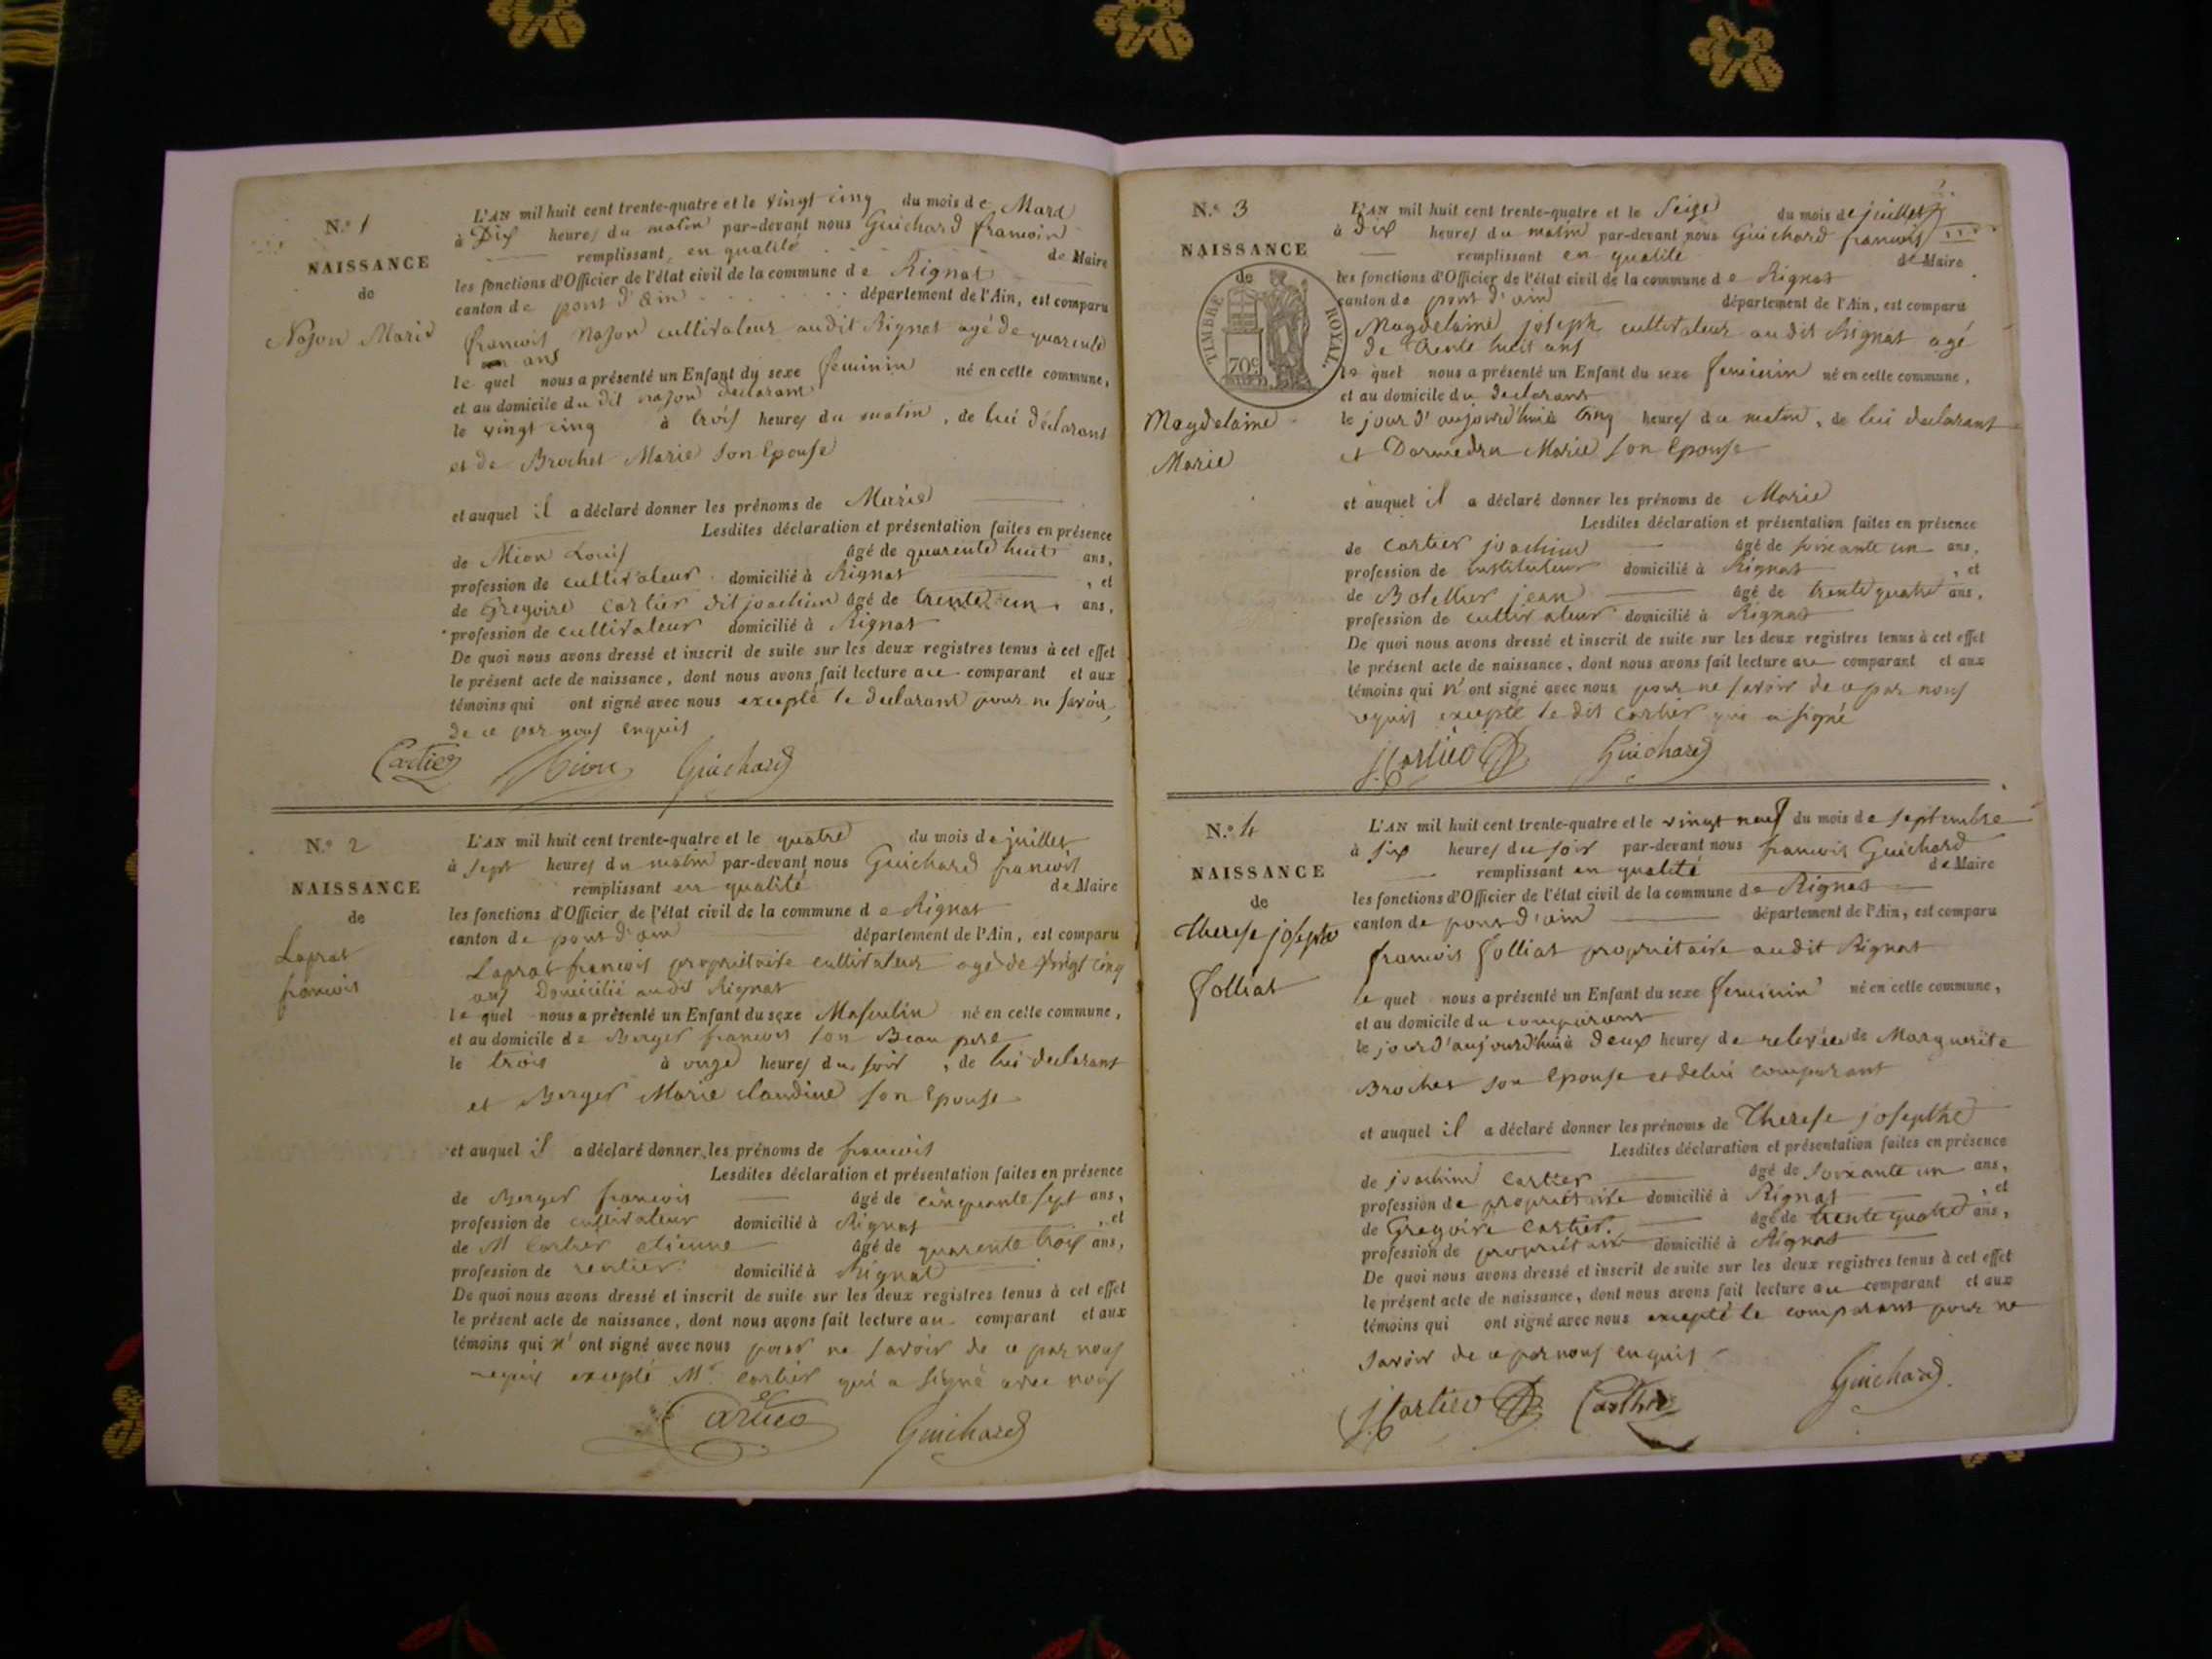 N.° 1
NAISSANCE
de
Najon Marie
L'AN mil huit cent trente-quatre et le vingt cinq du mois de Mars
à Dix heures du matin par-devant nous Guichard francois
remplissant en qualité de Maire
les fonctions d'Officier de l'état civil de la commune de Rignat
canton de pont d'ain département de l'Ain, est comparu
francois Najon cultivateur audit Rignat agé de quarente
ans
le quel nous a présenté un Enfant du sexe feminin né en celle commune,
et au domicile du dit najon declarant
le vingt cinq à trois heures du matin, de lui déclarant
et de Brochet Marie son Epouse
et auquel il a déclaré donner les prénoms de Marie
Lesdites déclaration et présentation faites en présence
de Mion Louis âgé de quarente huit ans,
profession de cultivateur domicilié à Rignat, et
de Gregoire Cartier dit joachim âgé de trente un ans,
profession de cultivateur domicilié à Rignat
De quoi nous avons dressé et inscrit de suite sur les deux registres tenus à cet effet
le présent acte de naissance, dont nous avons fait lecture au comparant et aux
témoins qui ont signé avec nous excepté le declarant pour ne savoir
de ce par nous enquis
Cartier Mion Guichard
N.° 2
NAISSANCE
de
Laprat
francois
L'AN mil huit cent trente-quatre et le quatre du mois de juillet
à sept heures du matin par-devant nous Guichard francois
remplissant en qualité de Maire
les fonctions d'Officier de l'état civil de la commune de Rignat
canton de pont d'ain département de l'Ain, est comparu
Laprat francois propriétaire cultivateur agé de vingt cinq
ans Domicilié audit Rignat
le quel nous a présenté un Enfant du sexe Masculin né en celle commune,
et au domicile de Berger francois son Beau pere
le trois à onze heures du soir, de lui declarant
et Berger Marie claudine son Epouse
et auquel il a déclaré donner les prénoms de francois
Lesdites déclaration et présentation faites en présence
de Berger francois âgé de cinquante sept ans,
profession de cultivateur domicilié à Rignat, et
de M Cartier etienne âgé de quarente trois ans,
profession de rentier domicilié à Rignat
De quoi nous avons dressé et inscrit de suite sur les deux registres tenus à cet effet
le présent acte de naissance, dont nous avons fait lecture au comparant et aux
témoins qui n'ont signé avec nous pour ne savoir de ce par nous
requis excepté Mr Cartier qui a signé avec nous
Cartier Guichard
N.° 3
NAISSANCE
de
TIMBRE ROYAL.
70c
Magdelaine
Marie
L'AN mil huit cent trente-quatre et le seize du mois de juillet
à dix heures du matin par-devant nous Guichard francois
remplissant en qualité de Maire
les fonctions d'Officier de l'état civil de la commune de Rignat
canton de pont d'ain département de l'Ain, est comparu
Magdelaine joseph cultivateur au dit Rignat agé
de trente huit ans
le quel nous a présenté un Enfant du sexe feminin né en celle commune,
et au domicile du declarant
le jour d'aujourd'hui à cinq heures du matin, de lui declarant
et Marie son Epouse
et auquel il a déclaré donner les prénoms de Marie
Lesdites déclaration et présentation faites en présence
de Cartier joachim âgé de soixante un ans,
profession de instituteur domicilié à Rignat, et
de jean âgé de trente quatre ans,
profession de cultivateur domicilié à Rignat
De quoi nous avons dressé et inscrit de suite sur les deux registres tenus à cet effet
le présent acte de naissance, dont nous avons fait lecture au comparant et aux
témoins qui n'ont signé avec nous pour ne savoir de ce par nous
requis excepté le dit Cartier qui a signé
J Cartier Guichard
N.° 4
NAISSANCE
de
therese josephte
Jolliat
L'AN mil huit cent trente-quatre et le vingt neuf du mois de septembre
à six heures du soir par-devant nous francois Guichard
remplissant en qualité de Maire
les fonctions d'Officier de l'état civil de la commune de Rignat
canton de pont d'ain département de l'Ain, est comparu
francois Jolliat propriétaire audit Rignat
le quel nous a présenté un Enfant du sexe feminin né en celle commune,
et au domicile du comparant
le jour d'aujourd'hui à deux heures de relevée de Marguerite
Brochet son Epouse et de lui comparant
et auquel il a déclaré donner les prénoms de Therese josephte
Lesdites déclaration et présentation faites en présence
de joachim Cartier âgé de soixante un ans,
profession de propriétaire domicilié à Rignat, et
de Gregoire Cartier âgé de trente quatre ans,
profession de propriétaire domicilié à Rignat
De quoi nous avons dressé et inscrit de suite sur les deux registres tenus à cet effet
le présent acte de naissance, dont nous avons fait lecture au comparant et aux
témoins qui ont signé avec nous excepté le comparant pour ne
savoir de ce par nous enquis
J Cartier Carthier Guichard